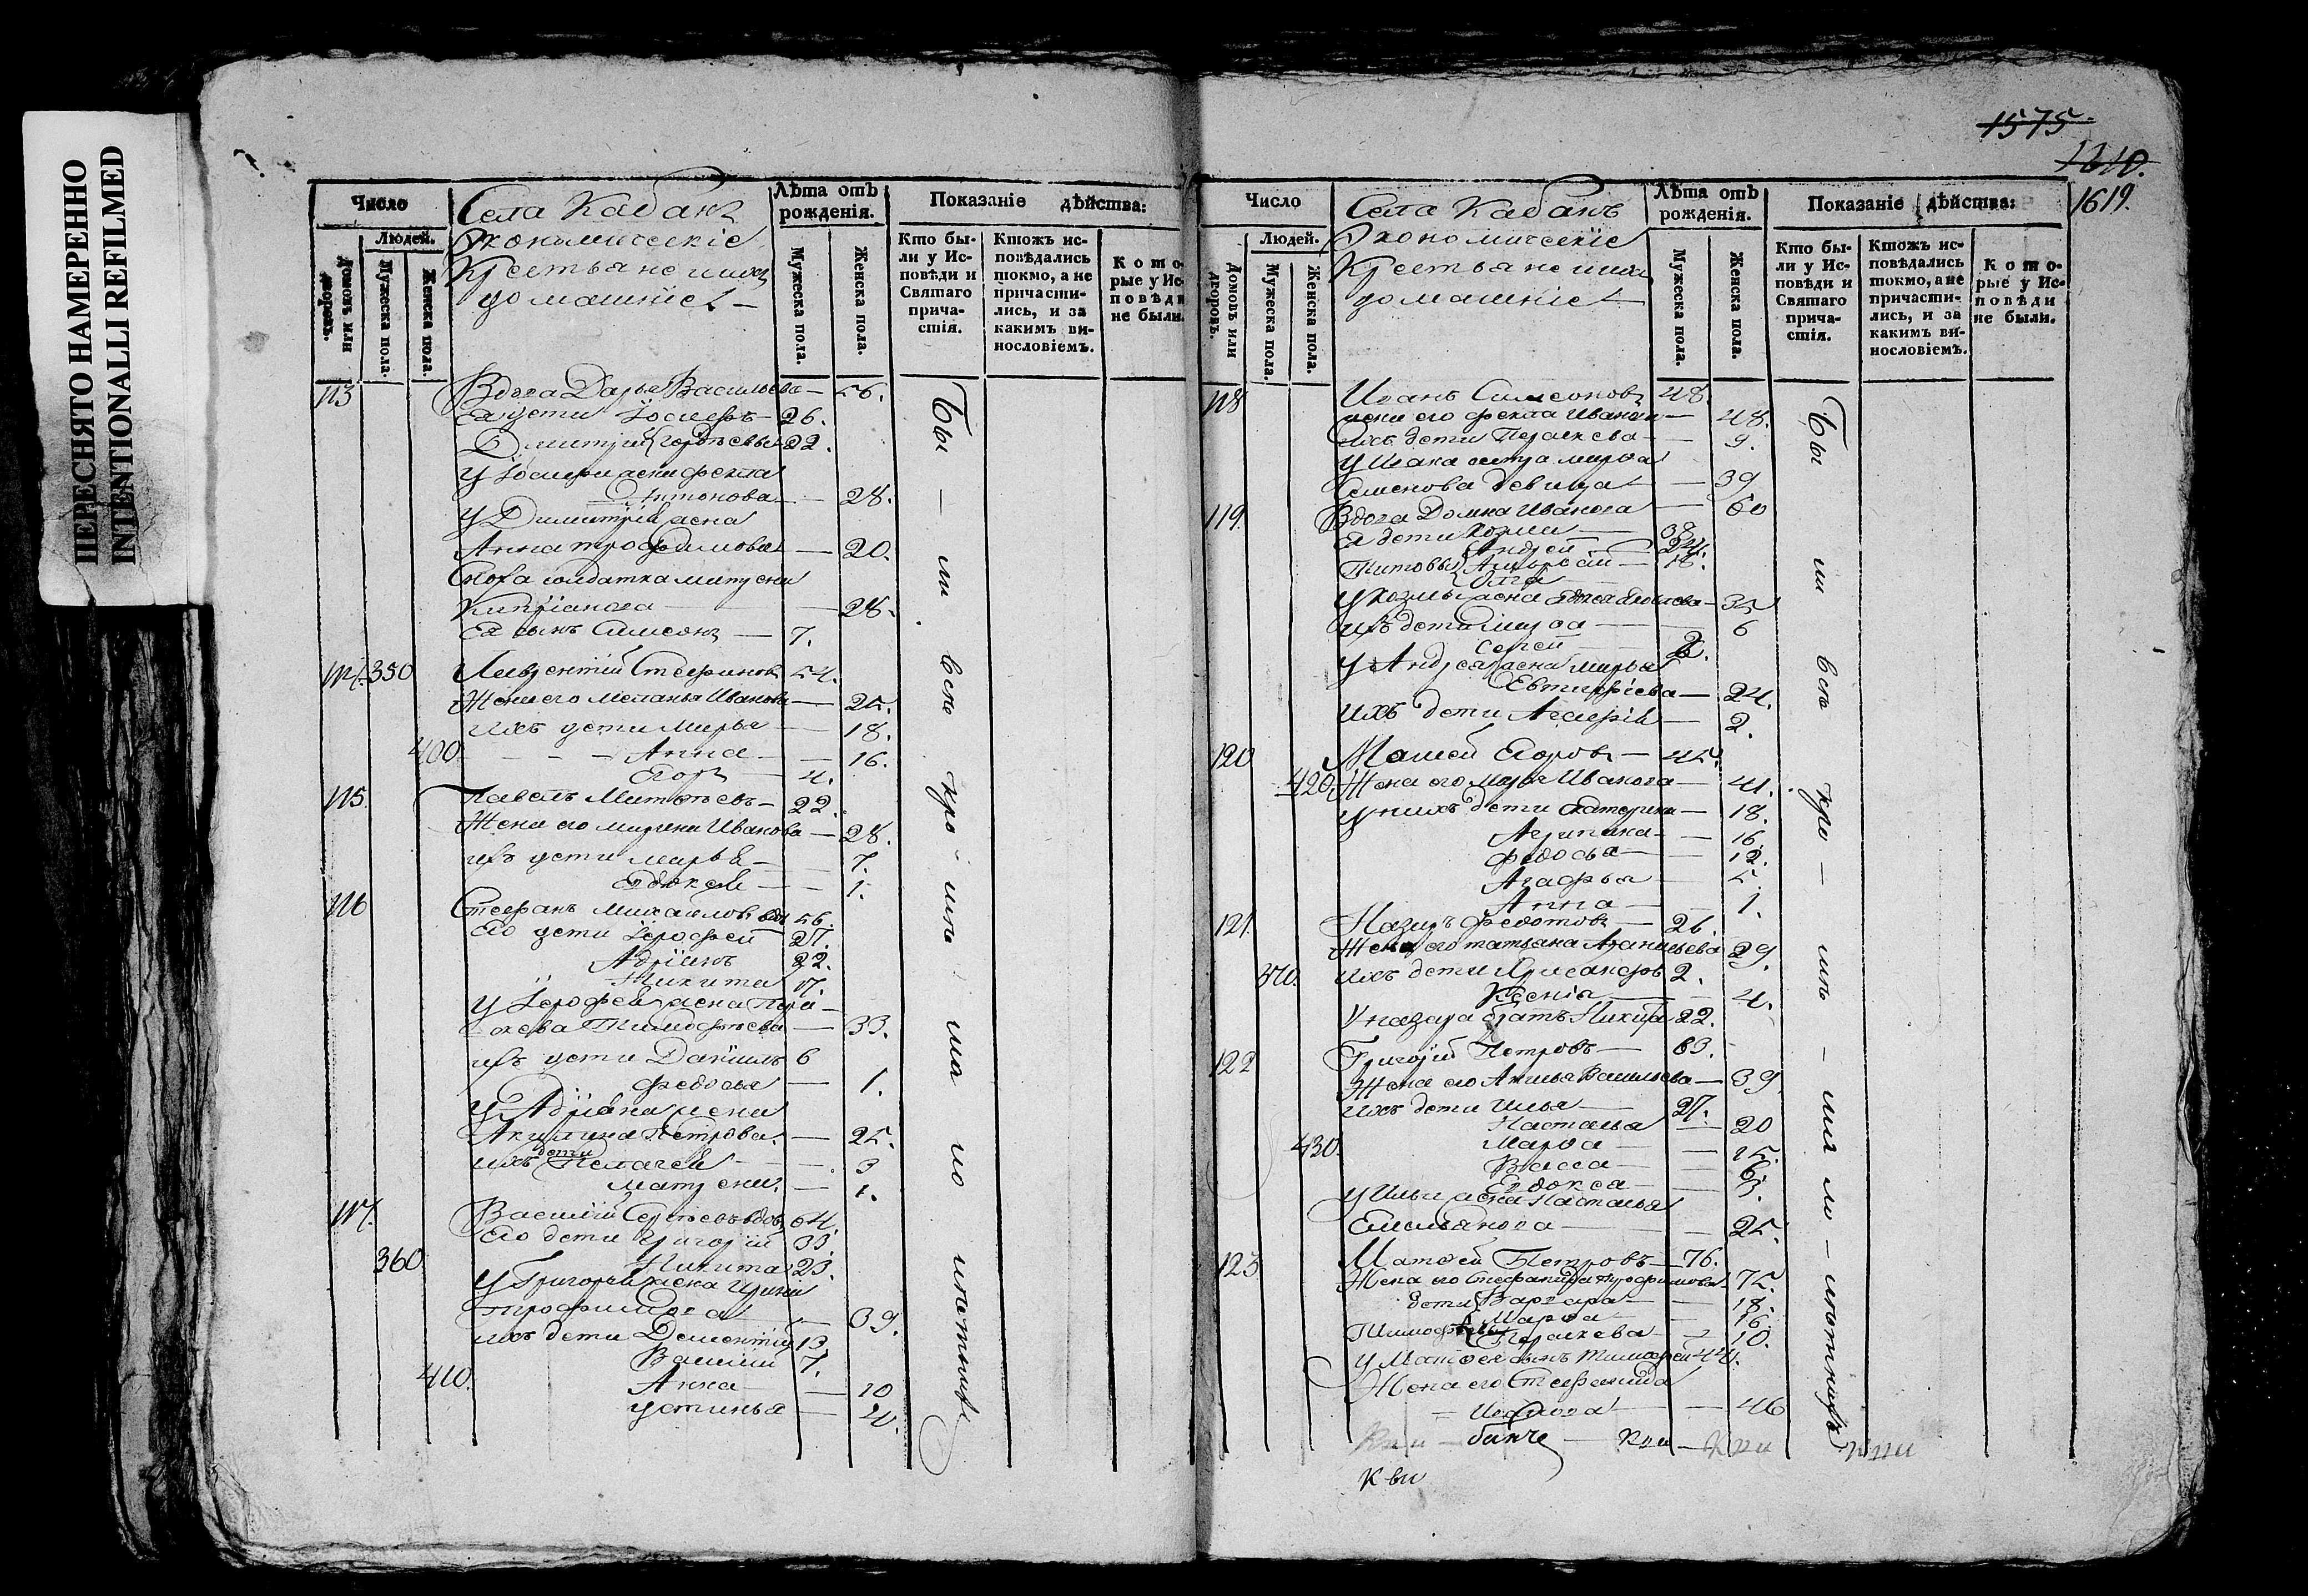 ПЕРЕСНЯТО НАМЕРЕННО
INTENTIONALLI REFILMED
Число
Людей.
Домовъ или дворовъ.
Мужеска пола.
Женска пола.
Села Кабанъ
Экономическіе
Крестьяне и ихъ
домашніе
Лѣта отъ рожденія.
Мужеска пола.
Женска пола.
Показаніе дѣйства:
Кто бы-
ли у Ис-
повѣди и
Святаго
прича-
стія.
Ктожъ ис-
повѣдались
токмо, а не
причасти-
лись, и за
какимъ ви-
нословіемъ.
Кото-
рые у Ис-
повѣди
не были.
113 Вдова Дарья Васильева — 56.
Ея дети Іосифъ — 26.
Димитрій 22.
У Іосифа жена Фекла
Антонова — 28.
У Димитрія жена
Анна Трофимова — 20.
Сноха солдатка Матрена
Кипріанова — 28.
Ея сынъ Симеонъ — 7.
114. 350 Лаврентій Стефановъ 54.
Жена его Меланья Иванова —
ихъ дети Марья — 18.
400 Анна — 16.
Егоръ — 4.
115 Павелъ 22.
Жена его Марина Иванова — 28.
ихъ дети Марья — 7.
1.
116 Стефанъ Михайловъ вдов 56.
Его дети Іерофей 27.
Адріанъ 22.
Никита 17.
У Іерофея жена Пара-
скева Тимофѣева — 33.
ихъ дети Даніилъ 6
Федосья — 1.
У Адріана жена
Акилина Петрова — 25.
ихъ дети Пелагея — 3
Матрена — 1.
117. Василій Сергѣевъ вдовъ 64.
Его дети Григорій 33.
360 Никита 23.
У Григорья жена Ирина
Трофимова — 39.
ихъ дети Дементій 13
Василій 7.
410. Анна — 10
Устинья — 4.
Бы — ли всѣ
1575.
1619.
Число
Людей.
Домовъ или дворовъ.
Мужеска пола.
Женска пола.
Села Кабанъ
Экономическіе
Крестьяне и ихъ
домашніе
Лѣта отъ рожденія.
Мужеска пола.
Женска пола.
Показаніе дѣйства:
Кто бы-
ли у Ис-
повѣди и
Святаго
прича-
стія.
Ктожъ ис-
повѣдались
токмо, а не
причасти-
лись, и за
какимъ ви-
нословіемъ.
Кото-
рые у Ис-
повѣди
не были.
118 Иванъ Симеоновъ 48.
жена его Фекла Иванова — 48.
ихъ дети Параскева — 9.
У Ивана сестра Марѳа
Семенова девица — 39
119. Вдова Домна Иванова — 60
Ея дети Козма — 38
Андрей — 24.
Титовы Амвросій — 18.
У Козмы жена — 35
ихъ дети Марѳа — 6
Сергей 2.
У Андрея жена Марья
Евтифіева — 24.
ихъ дети — 2.
120 Мосей Егоровъ — 45.
420 Жена его Марья Иванова — 41.
у нихъ дети Катерина — 18.
Агрипина — 16.
Федосья — 12.
Агафья — 5.
Анна — 1.
121. Назаръ Федотовъ — 26.
Жена его Татьяна 29
370. ихъ дети 2.
Ксенія — 4.
У Назара братъ Никита 22.
122 Григорій Петровъ — 63.
Жена его Васильева — 39.
ихъ дети Илья — 27.
Наталья — 20
430. Марѳа — 15.
Васса — 6.
3.
У Ильи жена Наталья
Емельянова — 25.
123 Матѳей Петровъ — 76.
Жена его Стефанида Трофимова 75.
дети Варвара — 18.
Марѳа — 16.
Параскева — 10.
У Матѳея сынъ Тимофей 44.
Жена его Стефанида
Иванова — 46
Бы ли всѣ